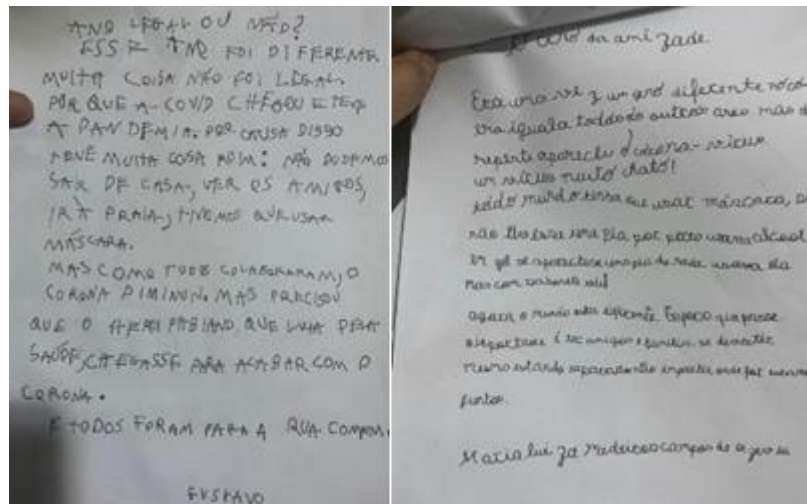 ANO LEGAL OU NÃO?
ESSE ANO FOI DIFERENTE
MUITA COISA NÃO FOI LEGAL.
POR QUE A COVID CHEGOU E TEVE
A PANDEMIA. POR CAUSA DISSO
TEVE MUITA COSA RUIM: NÃO PODEMOS
SAR DE CASA, VER OS AMIGOS,
IR À PRAIA, TIVEMOS QUE USAR
MÁSCARA.
MAS COMO TODOS COLABORARAM, O
CORONA DIMINUIU. MAS PRECISOU
QUE O HEREI FABIANO, QUE LUTA PELA
SAÚDE, CHEGASSE PARA ACABAR COM O
CORONA.
E TODOS FORAM PARA A RUA
GUSTAVO
da amizade
Era uma vez um ano diferente
era igual a todo outros anos mas de
repente apareceu o corona-vírus
um vírus muito chato!
toddo mundo tinha que usar máscara,
não pia por perto usava alcool
em gel se aparecesse uma pia
mas com sabonete
agora o mundo esta diferente. Espero que
importante é ter amigos e família
mesmo estando separados não importa
juntos.
Maria luiza Medeiros campos